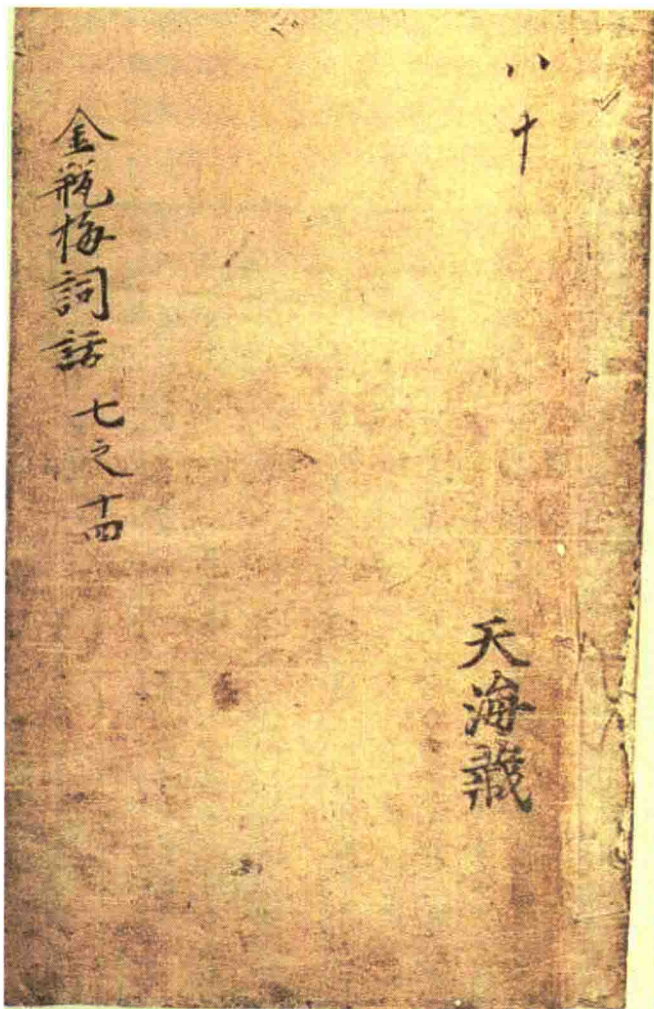 八十
天海藏
金瓶梅詞話 七之十四